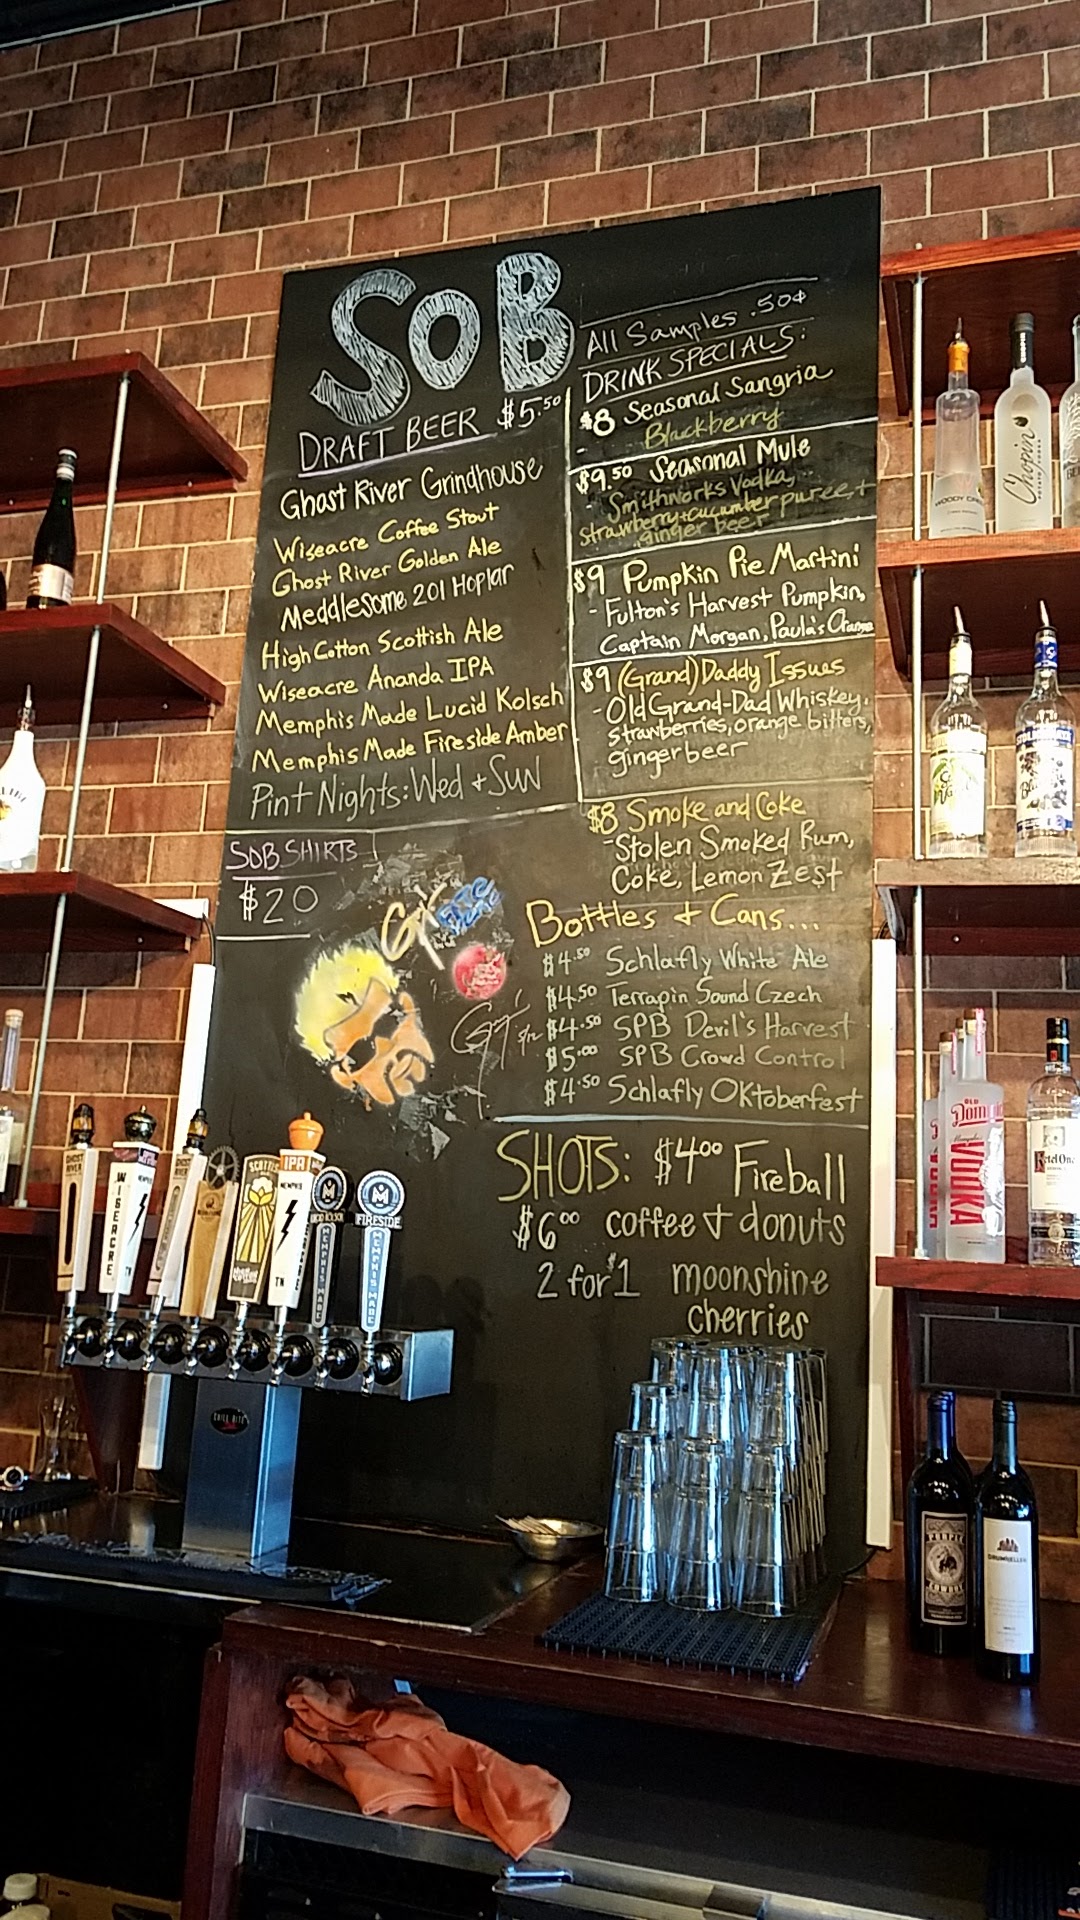 SOB
DRAFT BEER $5.50
Ghost River Grindhouse
Wiseacre Coffee Stout
Ghost River Golden Ale
Meddlesome 201 Hoplar
High Cotton Scottish Ale
Wiseacre Ananda IPA
Memphis Made Lucid Kolsch
Memphis Made Fireside Amber
Pint Nights: Wed + Sun
SOB SHIRTS
$20
All Samples .50¢
DRINK SPECIALS:
$8 Seasonal Sangria
- Blackberry
$9.50 Seasonal Mule
- Smithworks Vodka,
strawberry + cucumber puree, +
ginger beer
$9 Pumpkin Pie Martini
- Fulton's Harvest Pumpkin,
Captain Morgan, Paula's Orange
$9 (Grand) Daddy Issues
- Old Grand-Dad Whiskey,
strawberries, orange bitters,
ginger beer
$8 Smoke and Coke
- Stolen Smoked Rum,
Coke, Lemon Zest
Bottles + Cans...
$4.50 Schlafly White Ale
$4.50 Terrapin Sound Czech
$4.50 SPB Devil's Harvest
$5.00 SPB Crowd Control
$4.50 Schlafly OKtoberfest
SHOTS: $4.00 Fireball
$6.00 coffee + donuts
2 for $1 moonshine
cherries
GHOST RIVER
WISEACRE
TN
IPA
MEMPHIS
TN
FIRESIDE
MEMPHIS MADE
MEMPHIS MADE
CHOPIN
Chopin
OLD
Dom
VODKA
Ketel One
PURPLE
DRUMHELLER